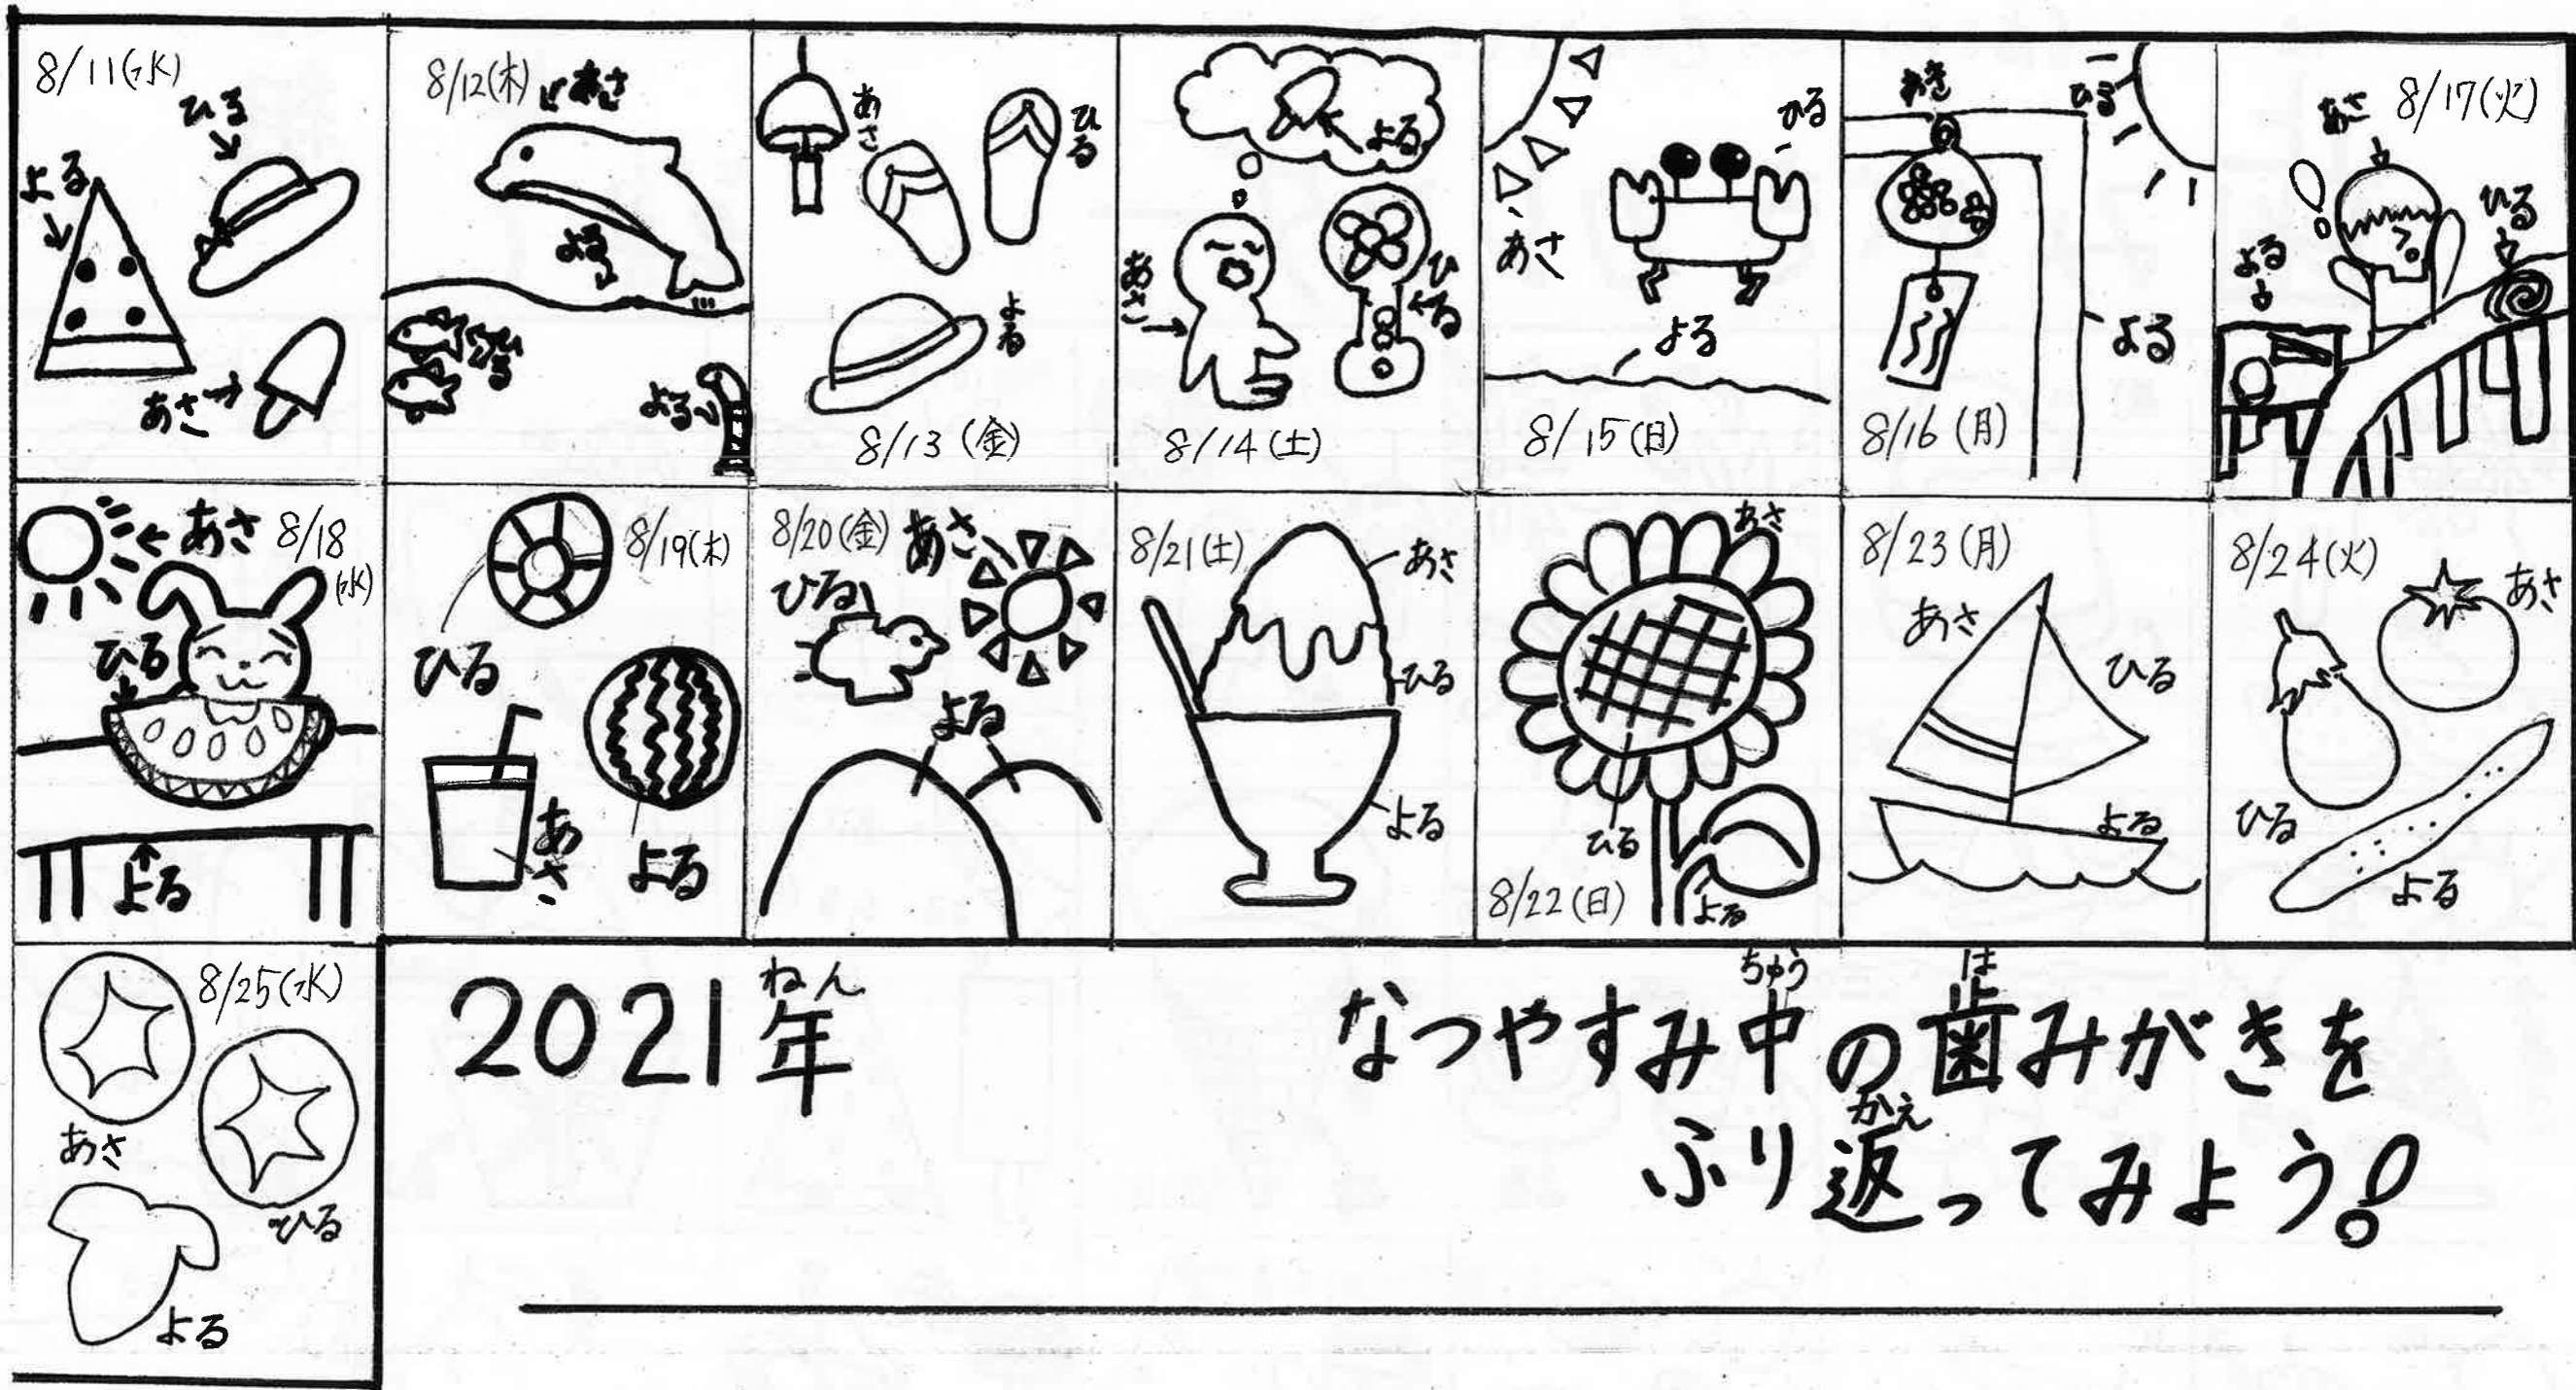 8/11(水)
ひる
よる
あさ
8/12(木)
あさ
よる
ひる
よる
あさ
ひる
よる
8/13(金)
よる
あさ
ひる
8/14(土)
ひる
あさ
よる
8/15(日)
あさ
ひる
よる
8/16(月)
あさ
8/17(火)
ひる
よる
あさ
8/18
(水)
ひる
よる
8/19(木)
ひる
あさ
よる
8/20(金)
あさ
ひる
よる
8/21(土)
あさ
ひる
よる
あさ
ひる
8/22(日)
よる
8/23(月)
あさ
ひる
よる
8/24(火)
あさ
ひる
よる
8/25(水)
あさ
ひる
よる
2021年
ねん
なつやすみ中の歯みがきを
ちゅう
は
ふり返ってみよう!
かえ